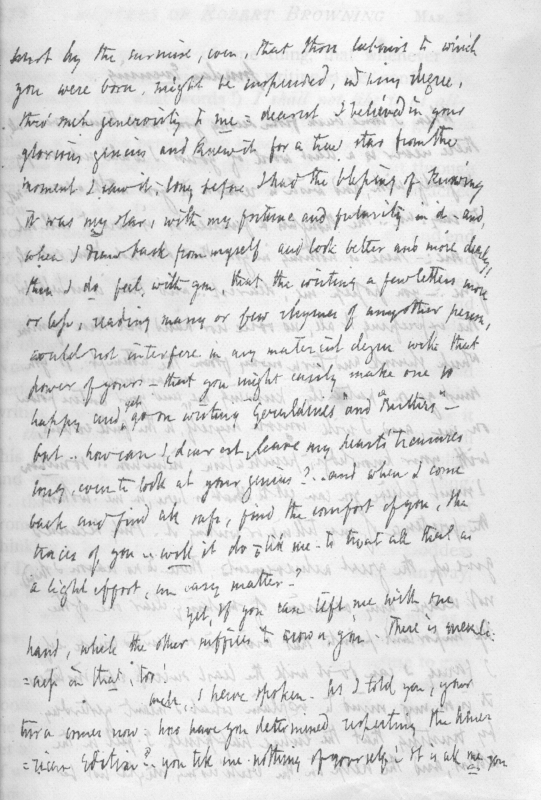 hurt by the surmise, even, that those labours to which
you were born, might be suspended, in any degree,
thro' such generosity to me - dearest I believed in your
glorious genius and knew it for a true star from the
moment I saw it, long before I had the blessing of knowing
it was my star, with my fortune and futurity in it - and,
when I draw back from myself and look better and more clearly,
then I do feel, with you, that the writing a few letters more
or less, reading many or few rhymes of any other person,
would not interfere in any material degree with that
power of yours - that you might easily make one so
happy and yet go on writing "Geraldines" and "Berthas" -
but .. how can I, dearest, leave my heart's treasures
long, even to look at your genius? .. and when I come
back and find all safe, find the comfort of you, the
traces of you .. will it do - tell me - to trust all that as
a light effort, an easy matter?
Yet, if you can lift me with one
hand, while the other suffices to crown you There is queenli-
=ness in that, too!
Well .. I have spoken. As I told you, your
turn comes now - how have you determined respecting the Amer-
=ican Edition? - you tell me nothing of yourself! It is all me you